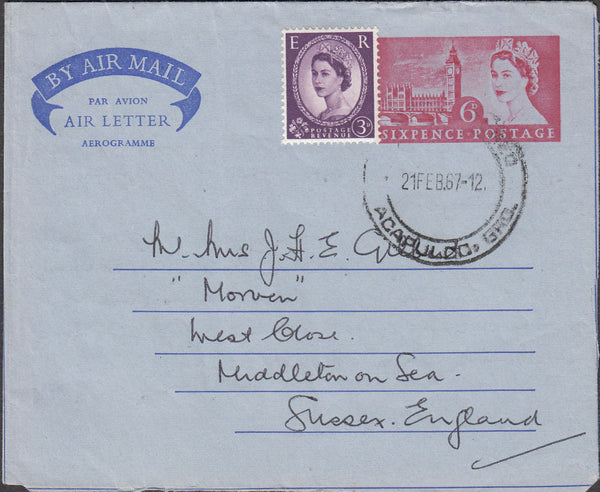 BY AIR MAIL
PAR AVION
AIR LETTER
AEROGRAMME
E R
POSTAGE
REVENUE
3D
6D
SIXPENCE·POSTAGE
21 FEB. 67-12.
ACAPULCO, GRO.
Mrs J. H. E.
"Morven"
West Close.
Middleton on Sea.
Sussex. England